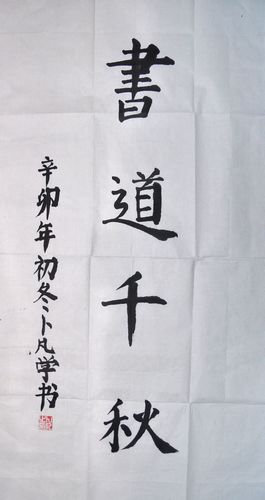 書道千秋
辛卯年初冬卜凡学书